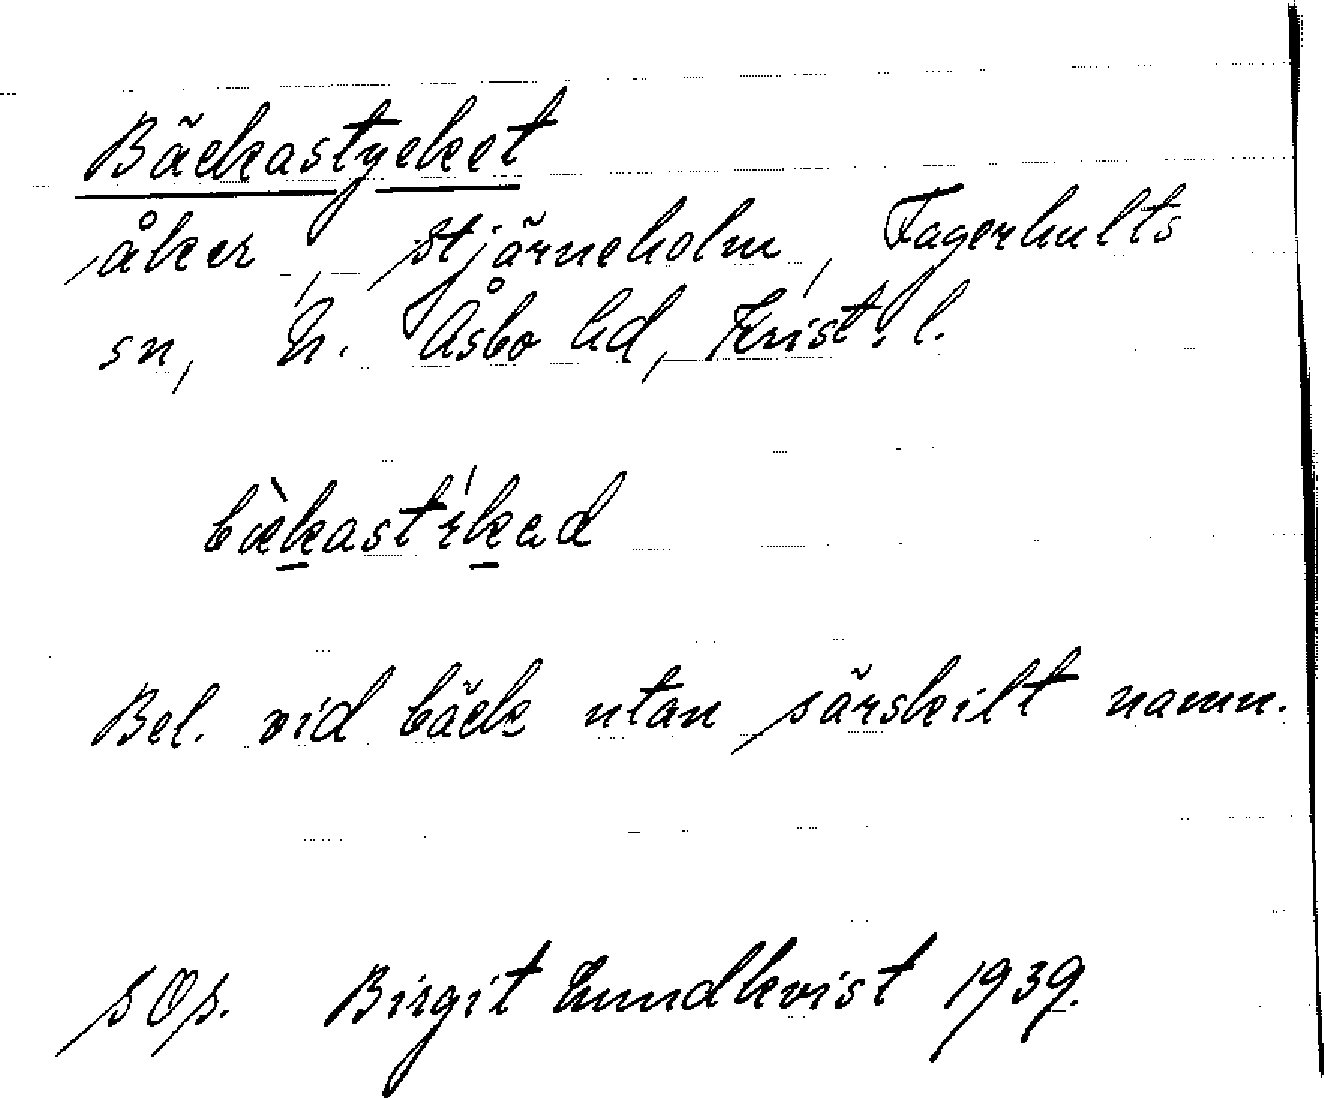 Bäckastycket
åker, Stjärneholm, Fagerhults
sn, N. Åsbo hd, Krist. l.
Bel. vid bäck utan särskilt namn.
sOs. Birgit Lundkvist 1939.